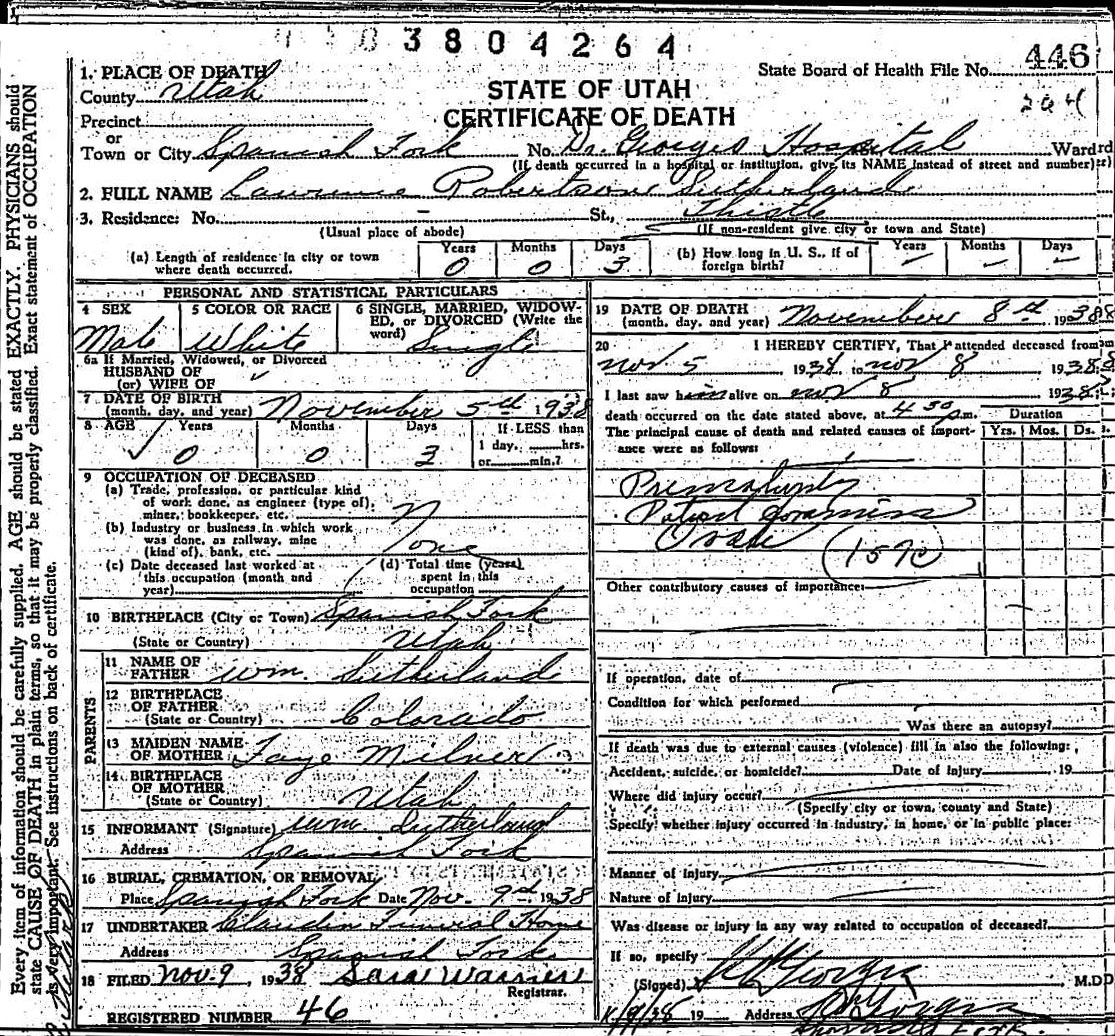 3 8 0 4 2 6 4
State Board of Health File No. 446
204
STATE OF UTAH
CERTIFICATE OF DEATH
1. PLACE OF DEATH
County Utah
Precinct
or
Town or City Spanish Fork No. Dr. Georges Hospital Ward
(If death occurred in a hospital or institution, give its NAME instead of street and number)
2. FULL NAME Lawrence Robertson Sutherland
3. Residence: No. - St., Thistle
(Usual place of abode) (If non-resident give city or town and State)
(a) Length of residence in city or town where death occurred. Years 0 Months 0 Days 3
(b) How long in U. S., if of foreign birth? Years - Months - Days -
PERSONAL AND STATISTICAL PARTICULARS
4 SEX Male
5 COLOR OR RACE White
6 SINGLE, MARRIED, WIDOWED, or DIVORCED (Write the word) Single
6a If Married, Widowed, or Divorced
HUSBAND OF
(or) WIFE OF
7 DATE OF BIRTH
(month, day, and year) November 5th 1938
8 AGE Years 0 Months 0 Days 3 If LESS than 1 day, hrs. or min.?
9 OCCUPATION OF DECEASED
(a) Trade, profession, or particular kind
of work done, as engineer (type of),
miner, bookkeeper, etc.
(b) Industry or business in which work
was done, as railway, mine
(kind of), bank, etc.
None
(c) Date deceased last worked at
this occupation (month and
year)
(d) Total time (years)
spent in this
occupation
10 BIRTHPLACE (City or Town) Spanish Fork
(State or Country) Utah
PARENTS
11 NAME OF
FATHER Wm. Sutherland
12 BIRTHPLACE
OF FATHER
(State or Country) Colorado
13 MAIDEN NAME
OF MOTHER Faye Milner
14 BIRTHPLACE
OF MOTHER
(State or Country) Utah
15 INFORMANT (Signature) Wm. Sutherland
Address Spanish Fork
16 BURIAL, CREMATION, OR REMOVAL
Place Spanish Fork Date Nov. 9 1938
17 UNDERTAKER Claudin Funeral Home
Address Spanish Fork
18 FILED Nov. 9 1938 Sara Warner
Registrar.
REGISTERED NUMBER 46
19 DATE OF DEATH
(month, day, and year) November 8th 1938
20 I HEREBY CERTIFY, That I attended deceased from
Nov 5 1938 to Nov 8 1938
I last saw him alive on Nov 8 1938
death occurred on the date stated above, at 4 30 m.
The principal cause of death and related causes of importance were as follows: Duration
Yrs. Mos. Ds.
Prematurity
Patent foramina
Ovale (157c)
Other contributory causes of importance:
If operation, date of
Condition for which performed
Was there an autopsy?
If death was due to external causes (violence) fill in also the following:
Accident, suicide, or homicide? Date of injury 19
Where did injury occur?
(Specify city or town, county and State)
Specify whether injury occurred in industry, in home, or in public place:
Manner of injury
Nature of injury
Was disease or injury in any way related to occupation of deceased?
If so, specify
(Signed) M.D.
19 Address
Every item of information should be carefully supplied. AGE should be stated EXACTLY. PHYSICIANS should
state CAUSE OF DEATH in plain terms, so that it may be properly classified. Exact statement of OCCUPATION
is very important. See instructions on back of certificate.